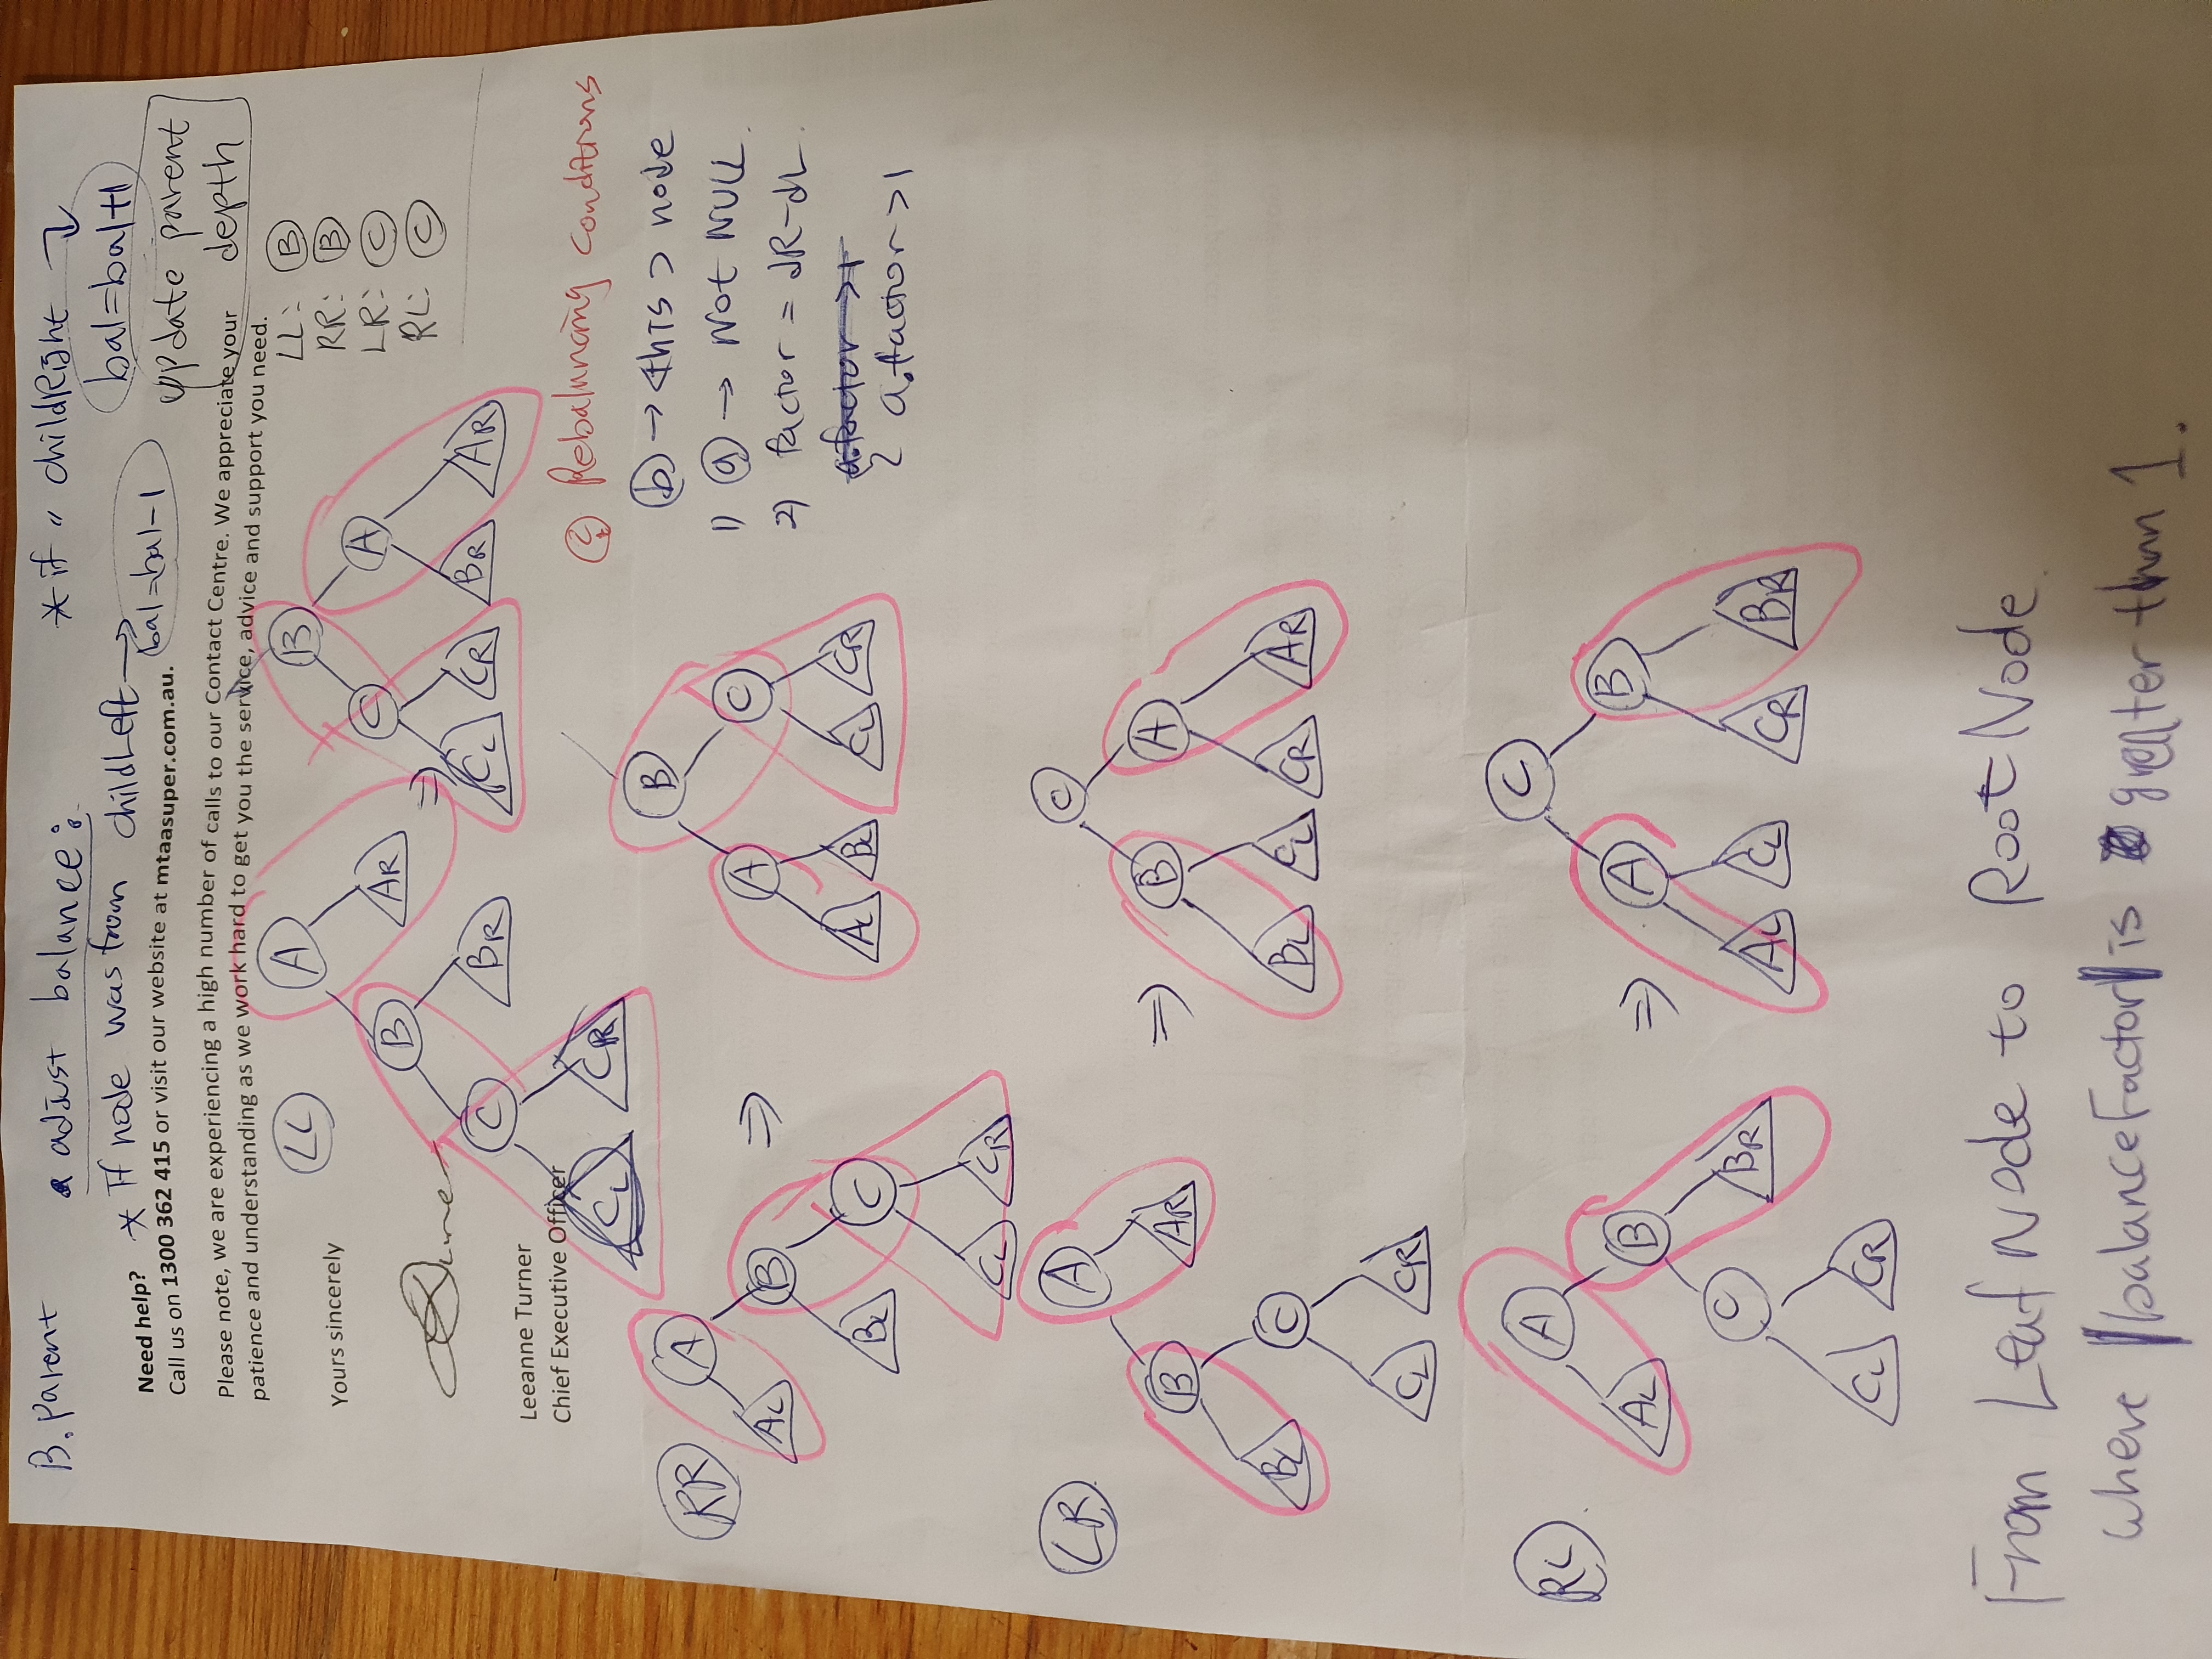 B. Parent
adjust balance:
* if " childRight
bal=bal+1
* If node was from childLeft →
bal=bal-1
update parent
depth
Need help?
Call us on 1300 362 415 or visit our website at mtaasuper.com.au.
Please note, we are experiencing a high number of calls to our Contact Centre. We appreciate your
patience and understanding as we work hard to get you the service, advice and support you need.
Yours sincerely
Leeanne Turner
Chief Executive Officer
LL
A
B
AR
C
BR
CL
CR
⇒
B
C
A
CL
CR
BR
AR
LL: B
RR: B
LR: C
RL: C
Rebalancing conditions
b → <this> node
1) a → Not NULL.
2) factor = dR-dL.
a.factor >1
2 a.factor >1
RR
A
AL
B
BL
C
CL
CR
⇒
B
A
C
AL
BL
CL
CR
LR
A
B
AR
BL
C
CL
CR
⇒
C
B
A
BL
CL
CR
AR
RL
A
AL
B
C
BR
CL
CR
⇒
C
A
B
AL
CL
CR
BR
From Leaf Node to Root Node
where |balanceFactor| is greater than 1.